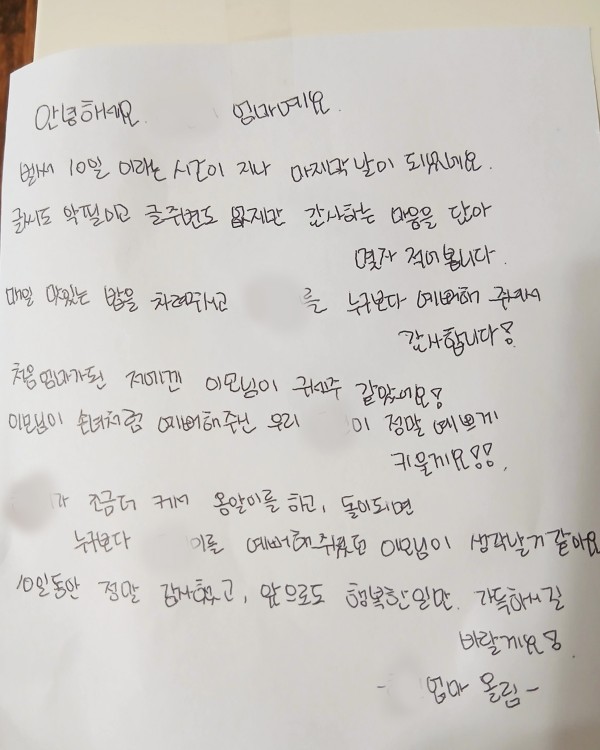 안녕하세요. 엄마예요.
벌써 10일 이라는 시간이 지나 마지막 날이 되었네요.
글씨도 악필이고 글주변도 없지만 감사하는 마음을 담아
몇자 적어봅니다.
매일 맛있는 밥을 차려주시고 를 누구보다 예뻐해 주셔서
감사합니다!
처음 엄마가된 저에겐 이모님이 구세주 같았어요!
이모님이 손녀처럼 예뻐해주신 우리 이 정말 예쁘게
키울게요!!
가 조금더 커서 옹알이를 하고, 돌이되면
누구보다 이를 예뻐해주셨던 이모님이 생각날거 같아요
10일동안 정말 감사했고, 앞으로도 행복한일만 가득하시길
바랄게요!
- 엄마 올림 -